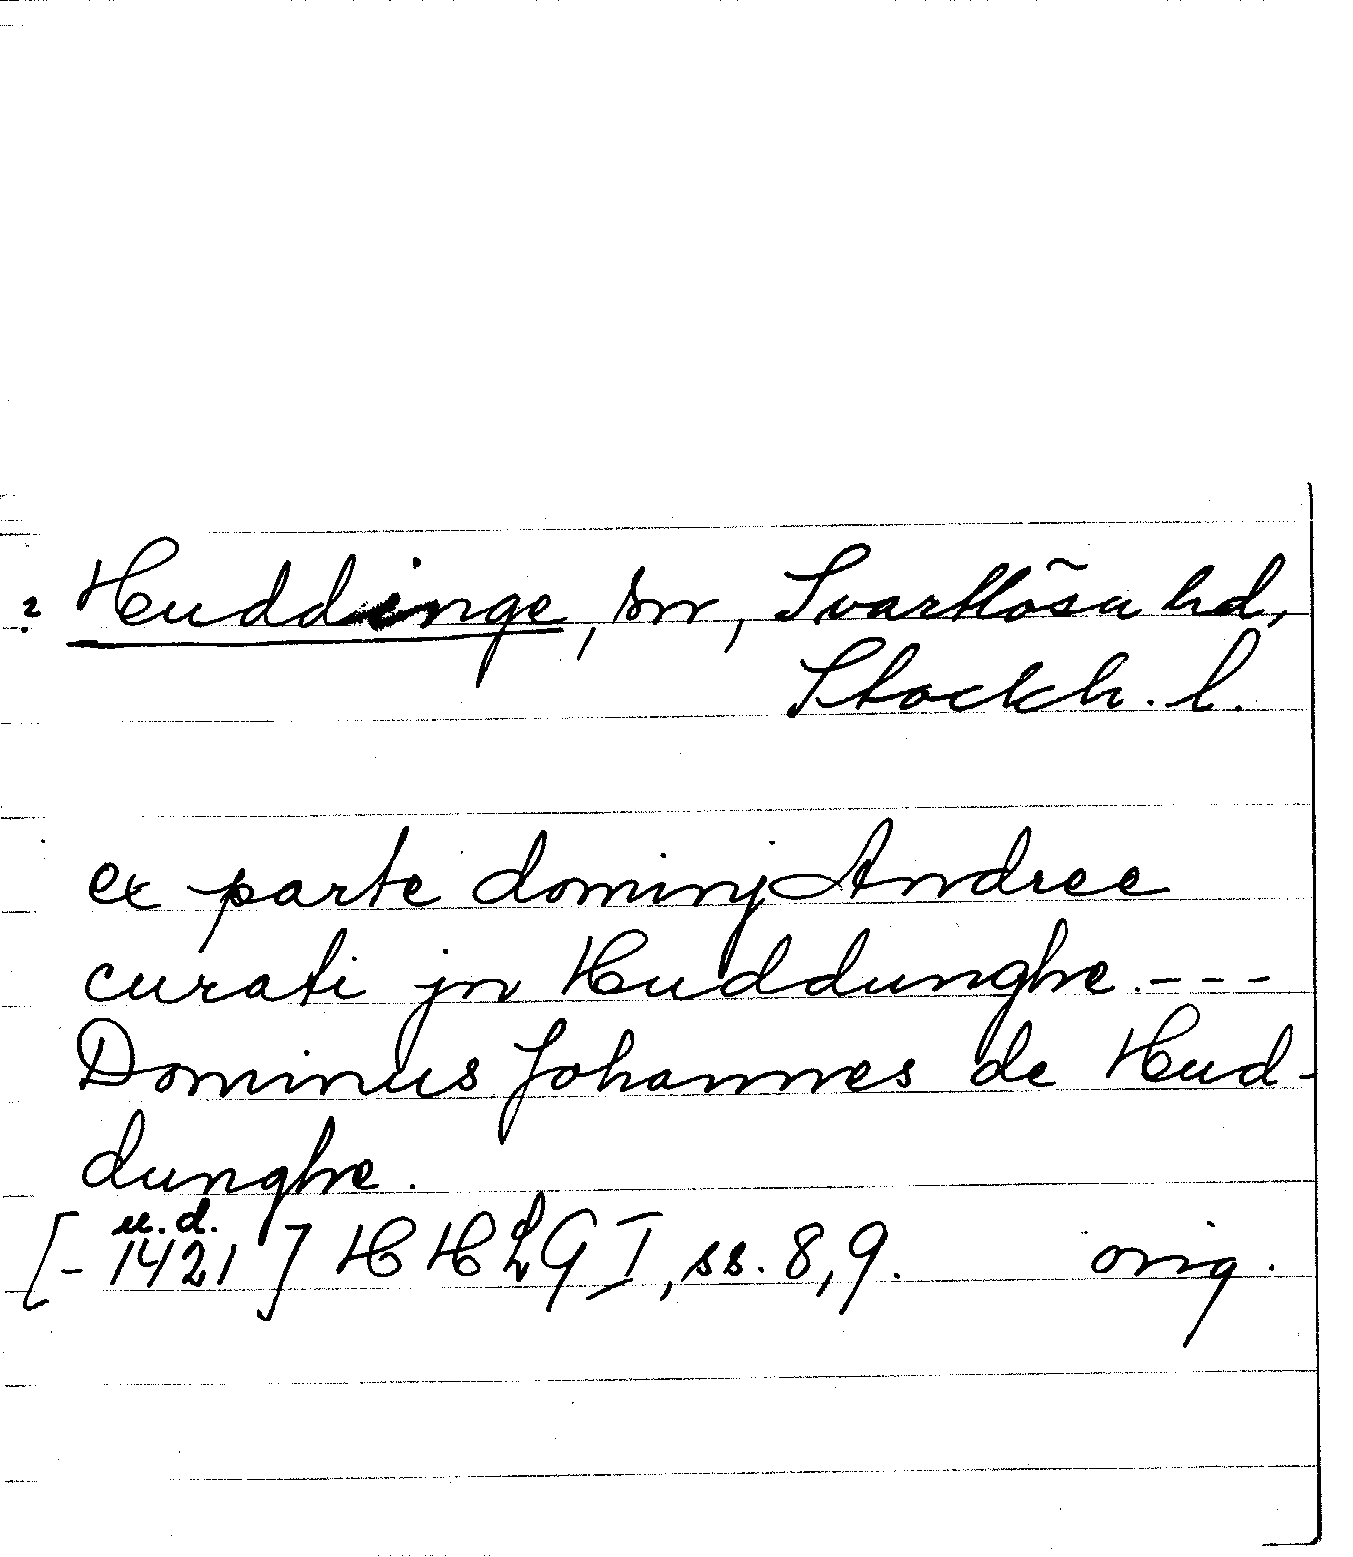 ? Huddinge, sn, Svartlösa hd,
Stockh. l.
ex parte dominj Andree
curati jn Huddunghe. ---
Dominus Johannes de Hud-
dunghe.
u.d.
[-1421] HHLG I, ss. 8, 9. orig.